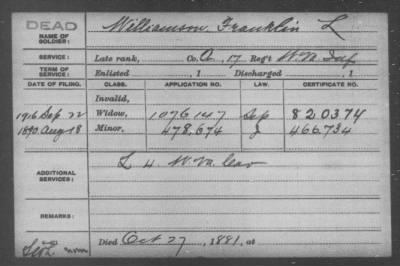 DEAD
NAME OF SOLDIER: Williamson, Franklin L
SERVICE: Late rank, Co. A, 17 Reg't W. Va Inf
TERM OF SERVICE: Enlisted , 1 Discharged , 1
DATE OF FILING. CLASS. APPLICATION NO. LAW. CERTIFICATE NO.
Invalid,
1916 Sep 22 Widow, 1076147 Sep 820374
1890 Aug 18 Minor, 478,674 J 466734
ADDITIONAL SERVICES: L 4. W. Va. Cav
REMARKS:
Died Oct 27, 1881, at